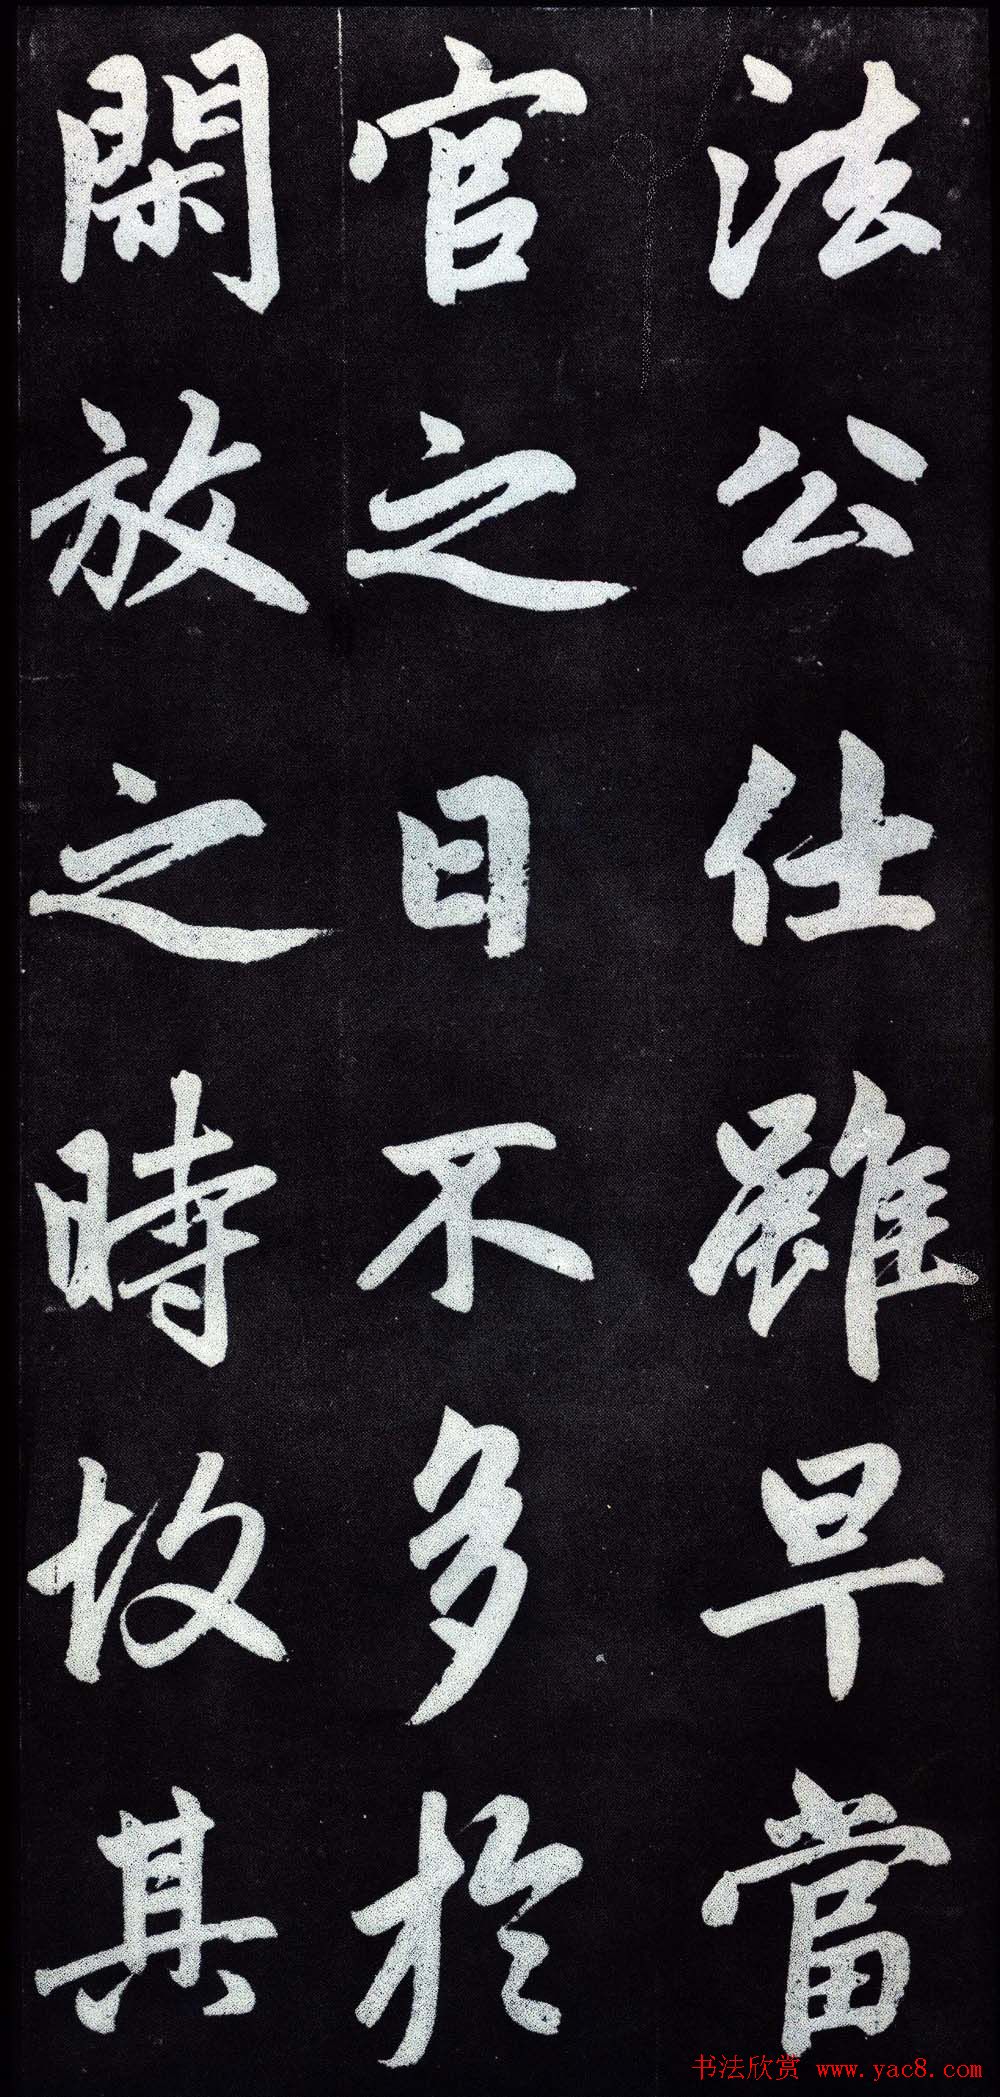 法公仕雖早當
官之日不多於
閑放之時故其
书法欣赏 www.yac8.com